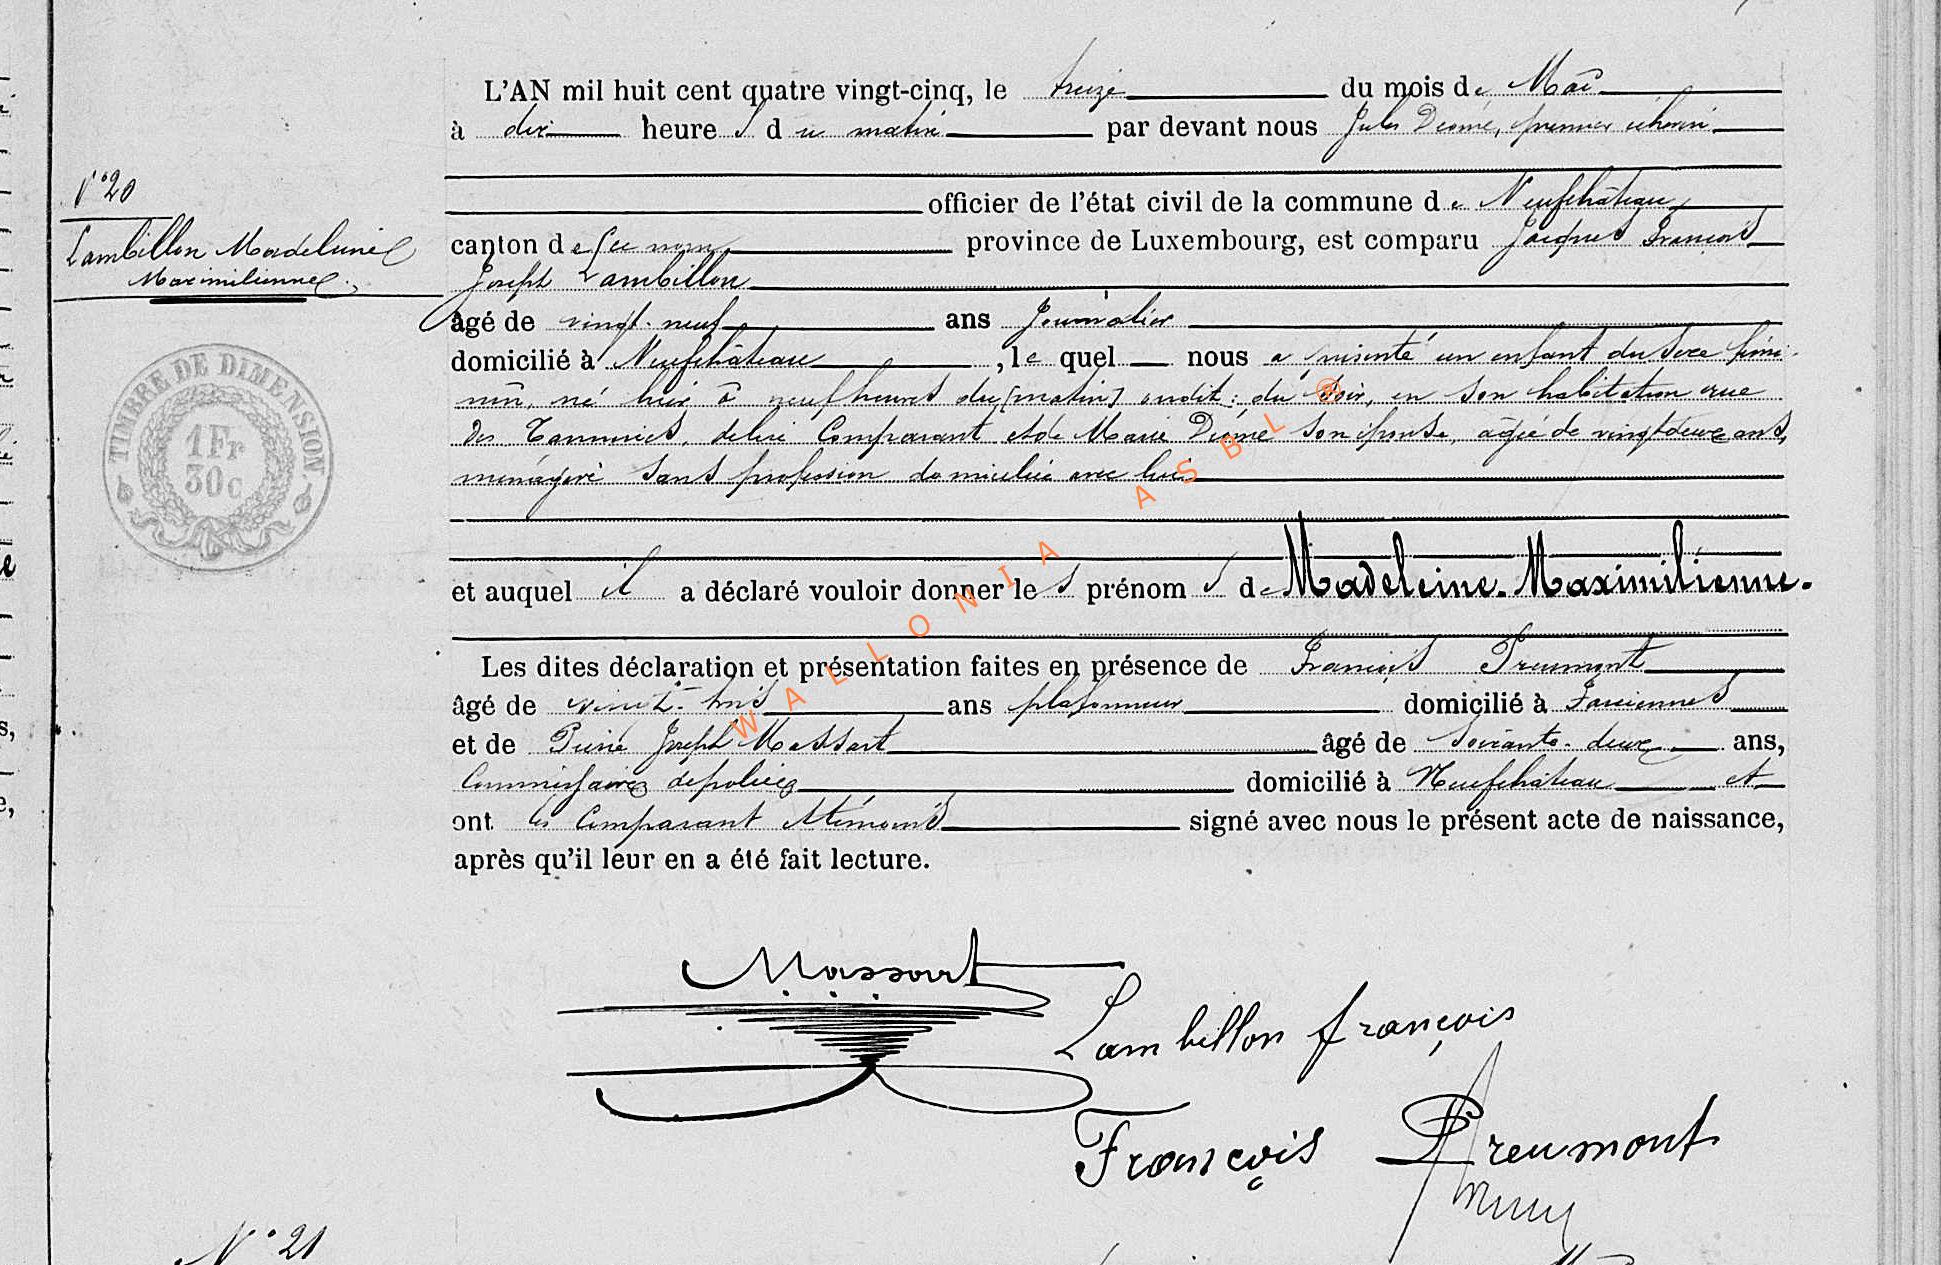 L'AN mil huit cent quatre vingt-cinq, le treize du mois de Mai
à dix heures du matin par devant nous Jules Diomé, premier échevin
N°20
officier de l'état civil de la commune de Neufchâteau
Lambillon Madeleine
canton de province de Luxembourg, est comparu Jacques François
Maximilienne.
Joseph Lambillon
âgé de vingt-neuf ans Journalier
domicilié à Neufchâteau, lequel nous a présenté un enfant du sexe fémi-
nin, né hier à neuf heures du [matin] ondit: du soir, en son habitation rue
des Tanneries, de lui Comparant et de Marie Diomé son épouse, agée de vingt deux ans,
ménagère sans profession domiciliée avec lui
et auquel il a déclaré vouloir donner les prénoms de Madeleine. Maximilienne.
Les dites déclaration et présentation faites en présence de François Preumont
âgé de vingt-trois ans plafonneur domicilié à
et de Pierre Joseph Massart âgé de Soixante-deux ans,
Commissaire de police domicilié à Neufchâteau et
ont les Comparant & témoins signé avec nous le présent acte de naissance,
après qu'il leur en a été fait lecture.
TIMBRE DE DIMENSION
1 Fr
30 c
WALLONIA ASBL ®
Massart
Lambillon françois
François Preumont
N° 21